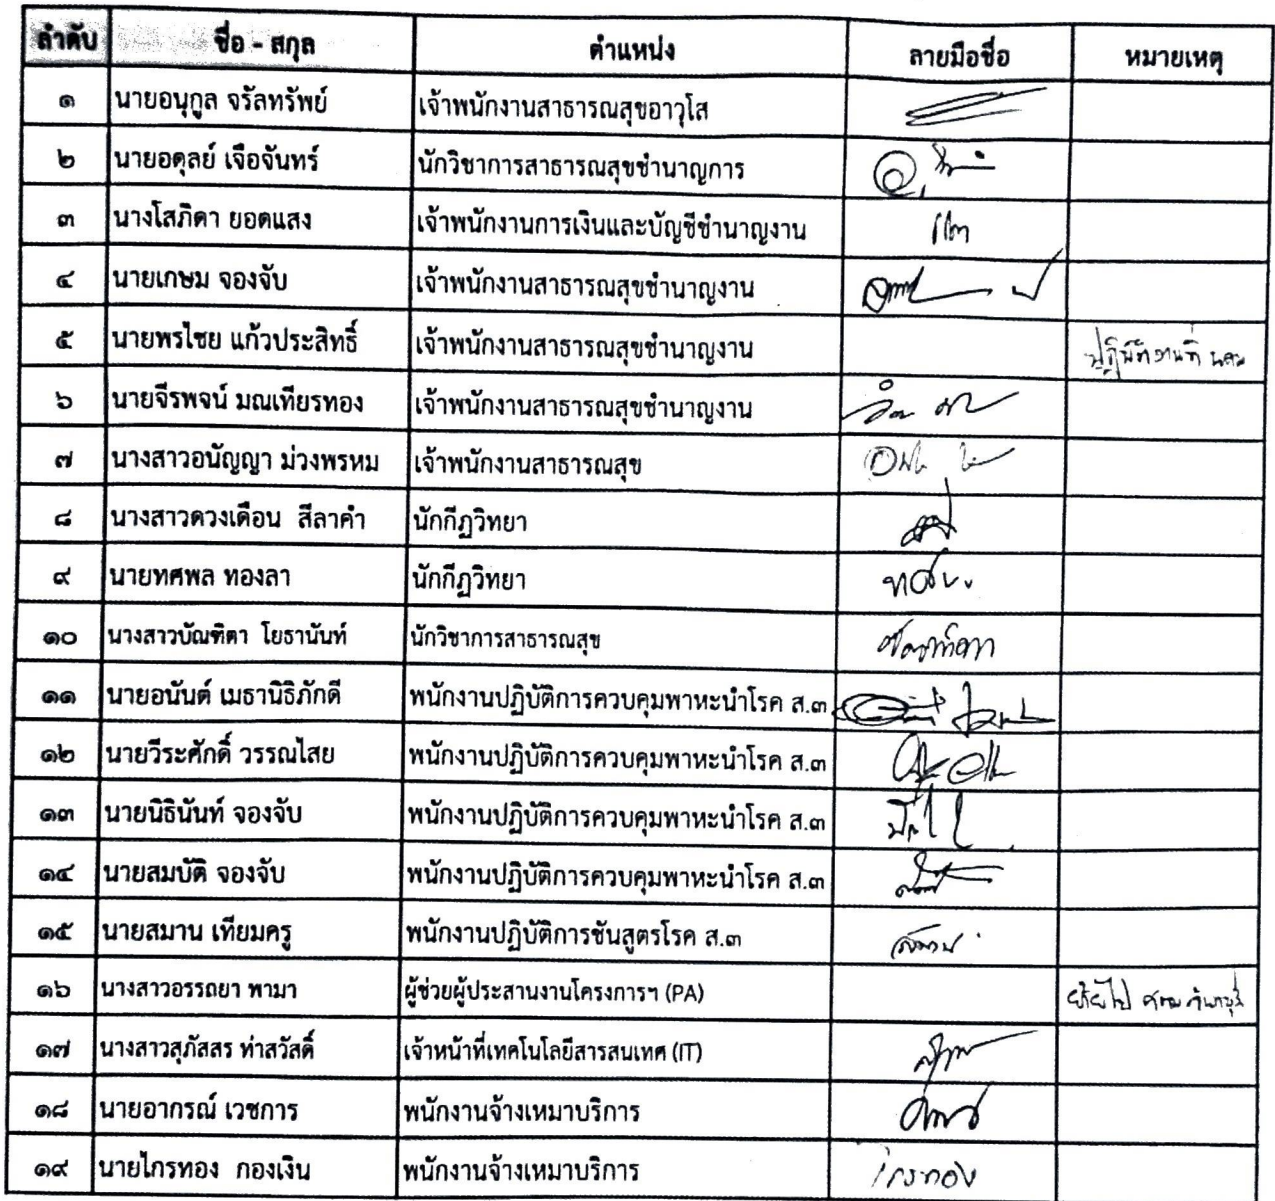 ลำดับ ชื่อ - สกุล ตำแหน่ง ลายมือชื่อ หมายเหตุ
๑ นายอนุกูล จรัลทรัพย์ เจ้าพนักงานสาธารณสุขอาวุโส
๒ นายอดุลย์ เจือจันทร์ นักวิชาการสาธารณสุขชำนาญการ
๓ นางโสภิดา ยอดแสง เจ้าพนักงานการเงินและบัญชีชำนาญงาน
๔ นายเกษม จองจับ เจ้าพนักงานสาธารณสุขชำนาญงาน
๕ นายพรไชย แก้วประสิทธิ์ เจ้าพนักงานสาธารณสุขชำนาญงาน
๖ นายจีรพจน์ มณเทียรทอง เจ้าพนักงานสาธารณสุขชำนาญงาน
๗ นางสาวอนัญญา ม่วงพรหม เจ้าพนักงานสาธารณสุข
๘ นางสาวดวงเดือน สีลาคำ นักกีฏวิทยา
๙ นายทศพล ทองลา นักกีฏวิทยา
๑๐ นางสาวบัณฑิตา โยธานันท์ นักวิชาการสาธารณสุข
๑๑ นายอนันต์ เมธานิธิภักดี พนักงานปฏิบัติการควบคุมพาหะนำโรค ส.๓
๑๒ นายวีระศักดิ์ วรรณไสย พนักงานปฏิบัติการควบคุมพาหะนำโรค ส.๓
๑๓ นายนิธินันท์ จองจับ พนักงานปฏิบัติการควบคุมพาหะนำโรค ส.๓
๑๔ นายสมบัติ จองจับ พนักงานปฏิบัติการควบคุมพาหะนำโรค ส.๓
๑๕ นายสมาน เทียมครู พนักงานปฏิบัติการชันสูตรโรค ส.๓
๑๖ นางสาวอรรถยา พามา ผู้ช่วยผู้ประสานงานโครงการฯ (PA) ย้ายไป
๑๗ นางสาวสุภัสสร ท่าสวัสดิ์ เจ้าหน้าที่เทคโนโลยีสารสนเทศ (IT)
๑๘ นายอาภรณ์ เวชการ พนักงานจ้างเหมาบริการ
๑๙ นายไกรทอง กองเงิน พนักงานจ้างเหมาบริการ ไกรทอง